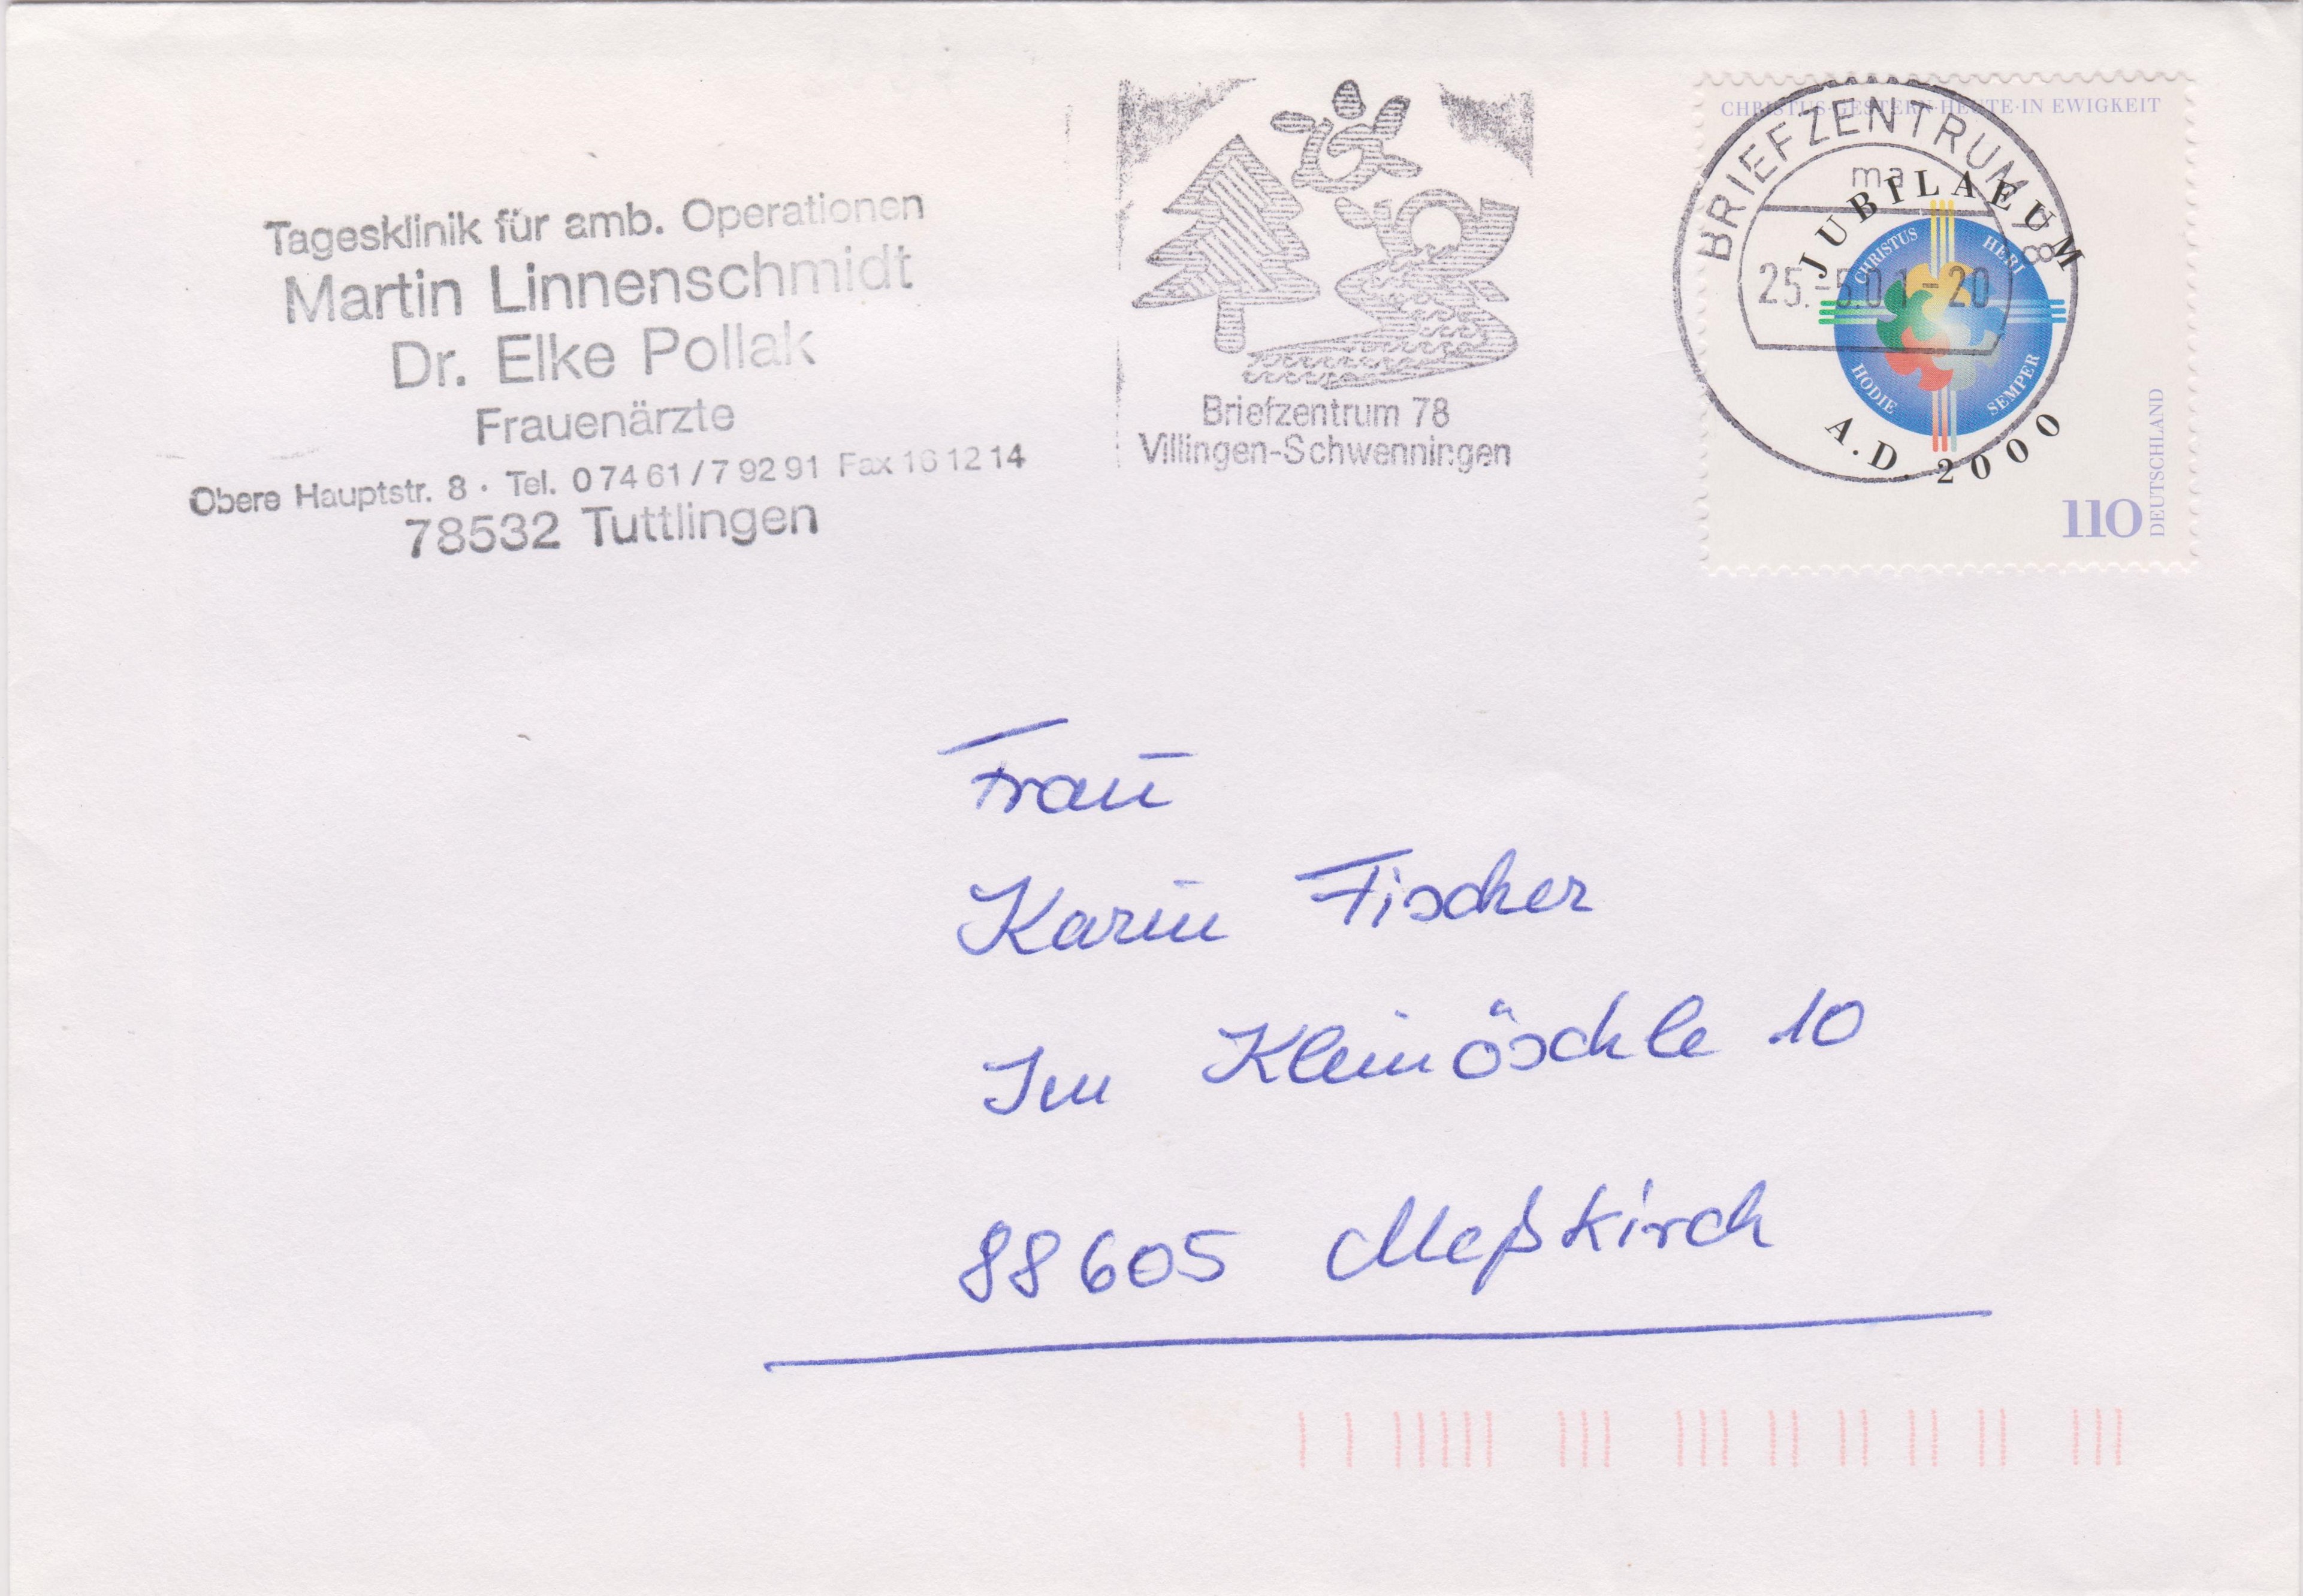 Tagesklinik für amb. Operationen
Martin Linnenschmidt
Dr. Elke Pollak
Frauenärzte
Obere Hauptstr. 8 · Tel. 0 74 61 / 7 92 91 Fax 16 12 14
78532 Tuttlingen
Briefzentrum 78
Villingen-Schwenningen
CHRISTUS·GESTERN·HEUTE·IN EWIGKEIT
BRIEFZENTRUM 78
ma
25.-5.01-20
JUBILAEUM
CHRISTUS HERI
HODIE SEMPER
A.D. 2000
110
DEUTSCHLAND
Frau
Karin Fischer
Im Kleinöschle 10
88605 Meßkirch